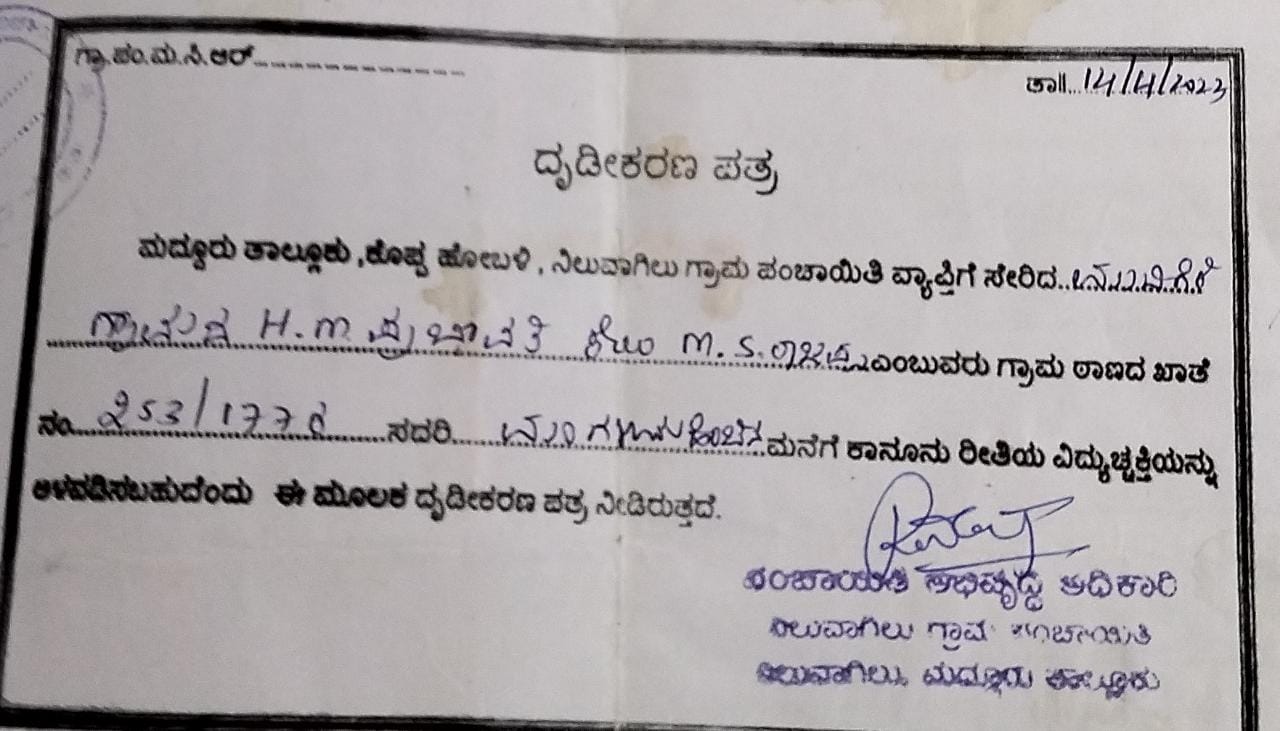 ಗ್ರಾ.ಪಂ.ಮ.ಸಿ.ಆರ್................
ತಾ||...14/4/2023
ದೃಡೀಕರಣ ಪತ್ರ
ಮದ್ದೂರು ತಾಲ್ಲೂಕು ,ಕೊಪ್ಪ ಹೋಬಳಿ , ನಿಲುವಾಗಿಲು ಗ್ರಾಮ ಪಂಚಾಯಿತಿ ವ್ಯಾಪ್ತಿಗೆ ಸೇರಿದ..
ಗ್ರಾಮದ H.M. ಪ್ರಭಾವತಿ ಕೋಂ M.S. ಎಂಬುವರು ಗ್ರಾಮ ಠಾಣದ ಖಾತೆ
ನಂ 253/177 ಸದರಿ ಮನೆಗೆ ಕಾನೂನು ರೀತಿಯ ವಿದ್ಯುಚ್ಚಕ್ತಿಯನ್ನು
ಅಳವಡಿಸಬಹುದೆಂದು ಈ ಮೂಲಕ ದೃಡೀಕರಣ ಪತ್ರ ನೀಡಿರುತ್ತದೆ.
ಪಂಚಾಯಿತಿ ಅಭಿವೃದ್ಧಿ ಅಧಿಕಾರಿ
ನಿಲುವಾಗಿಲು ಗ್ರಾಮ ಪಂಚಾಯಿತಿ
ನಿಲುವಾಗಿಲು, ಮದ್ದೂರು ತಾಲ್ಲೂಕು